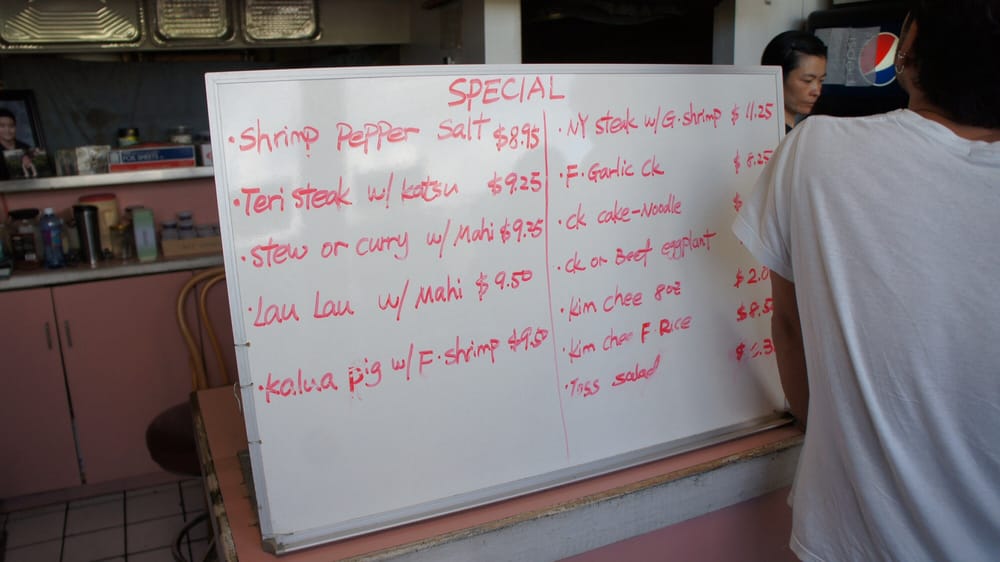 SPECIAL
• Shrimp Pepper Salt $8.95
• Teri steak w/ katsu $9.25
• stew or curry w/ Mahi $9.25
• Lau Lau w/ Mahi $9.50
• kalua pig w/ F. shrimp $9.50
• NY steak w/ G. shrimp $11.25
• F. Garlic ck $8.25
• ck cake-Noodle $
• ck or Beef eggplant
• kim chee 8oz $2.0
• kim chee F. Rice $8.5
• Toss salad $